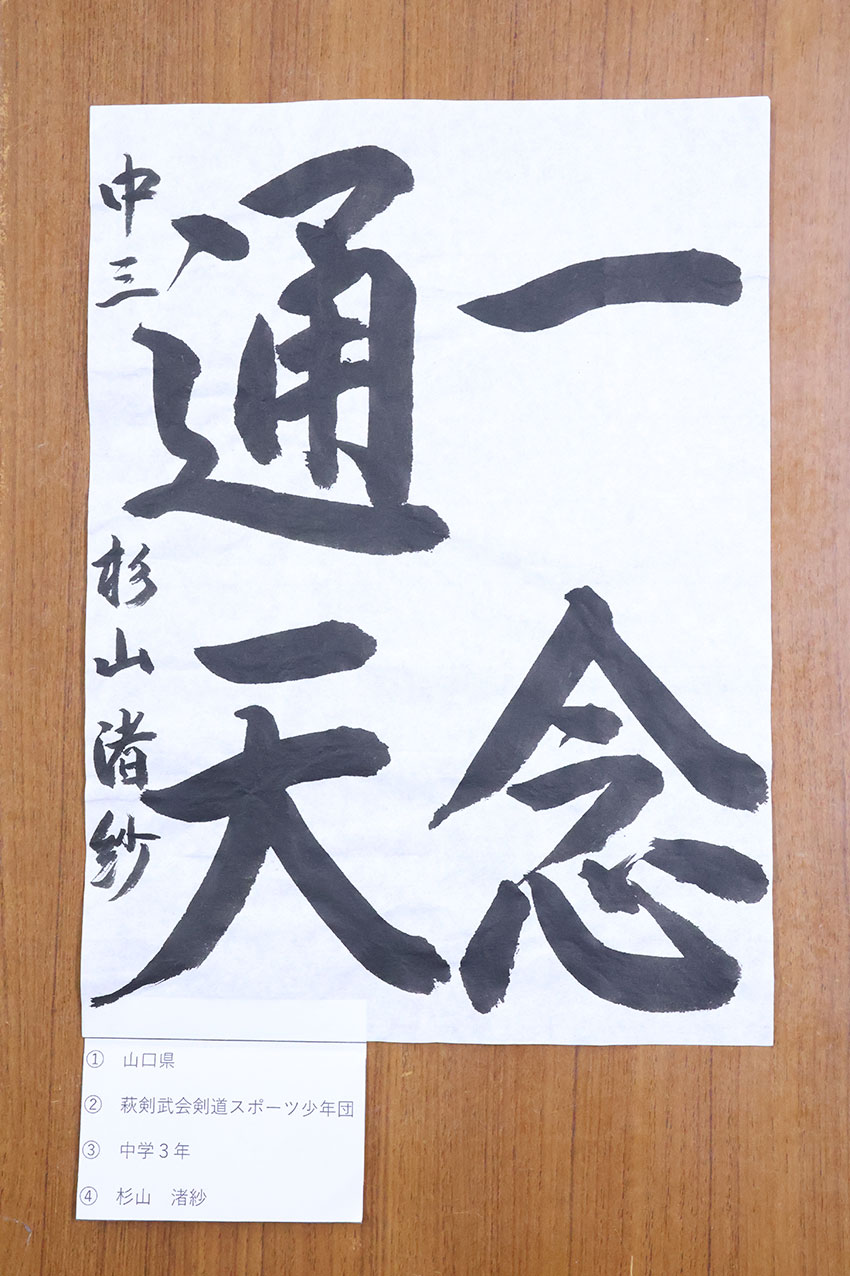 一念
通天
中三 杉山渚紗
① 山口県
② 萩剣武会剣道スポーツ少年団
③ 中学3年
④ 杉山 渚紗